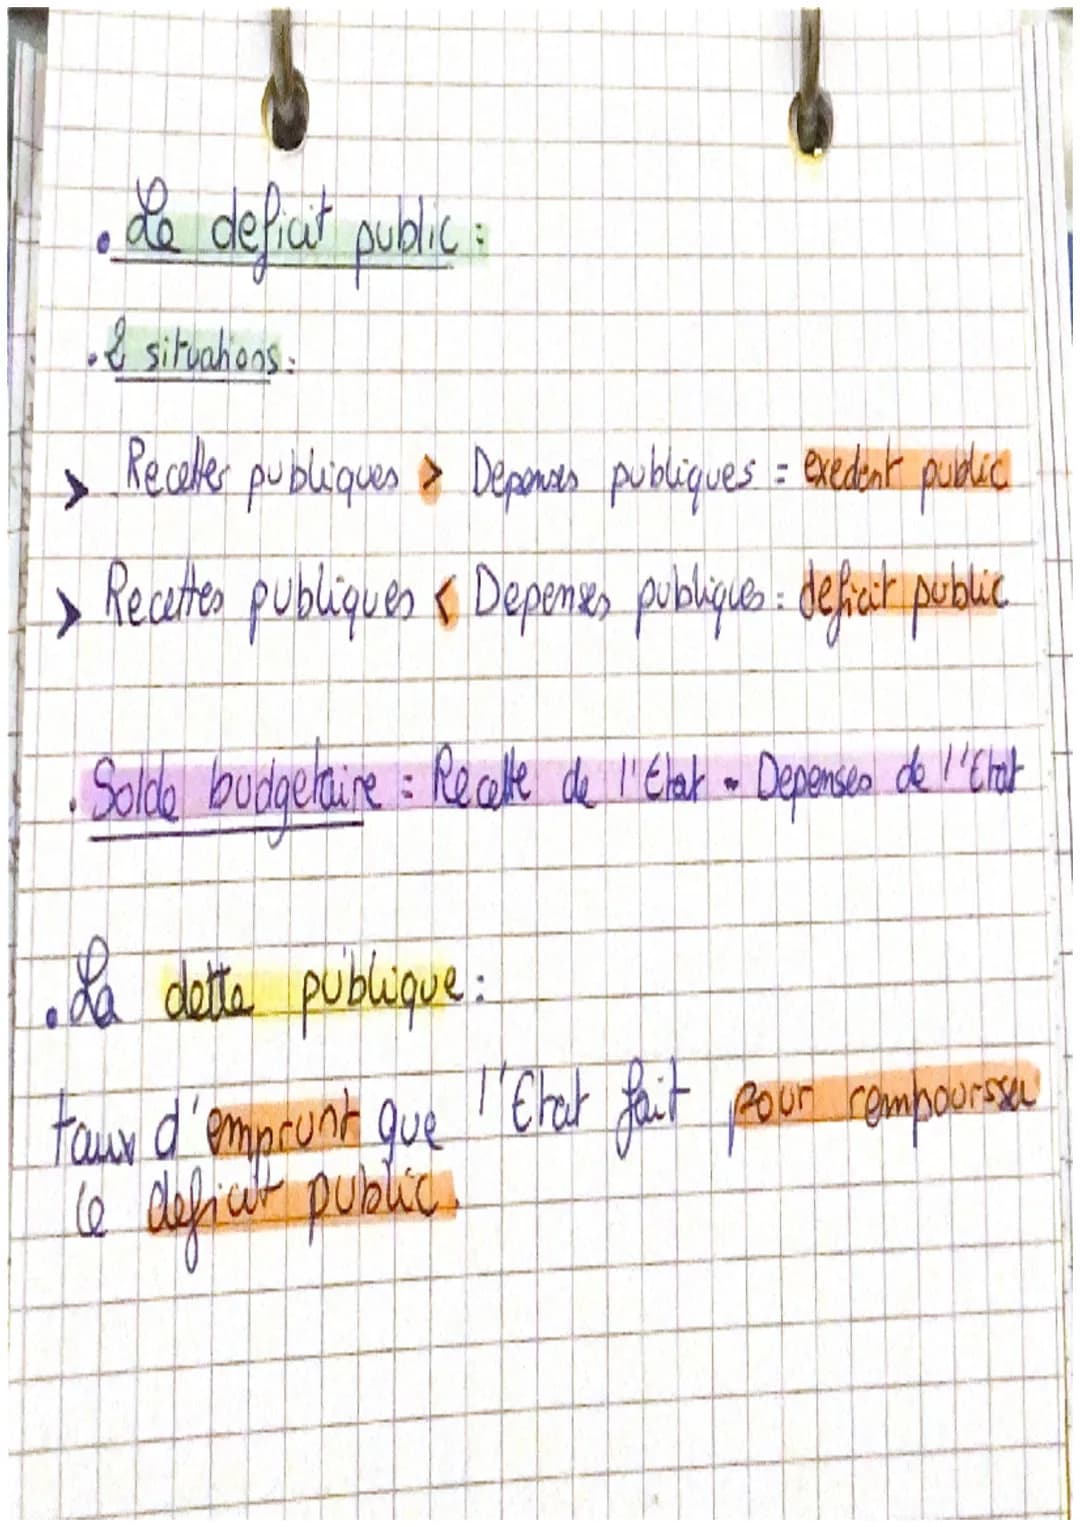 • Le deficit public :
• 2 situations :
> Recettes publiques > Depenses publiques = exedent public
> Recettes publiques < Depenses publiques = deficit public
• Solde budgetaire = Recette de l'Etat - Depenses de l'Etat
• La dette publique :
taux d'emprunt que l'Etat fait pour remboursser
le deficit public.